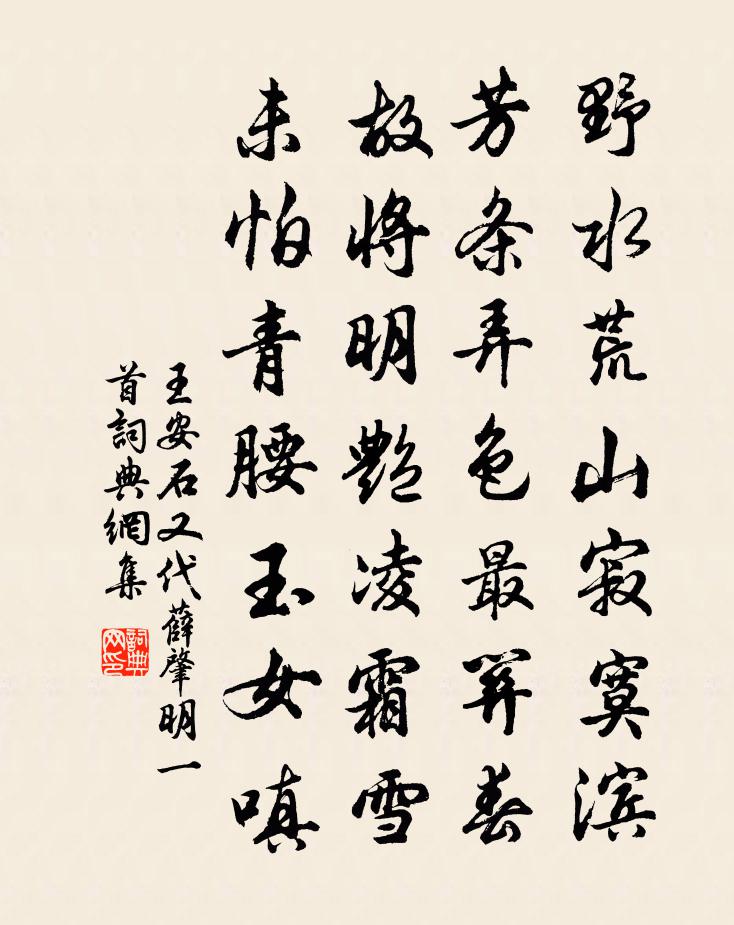 野水荒山寂寞滨
芳条弄色最關春
故將明艷凌霜雪
未怕青腰玉女嗔
王安石又代薛肇明一
首詞典網集
詞典
网印